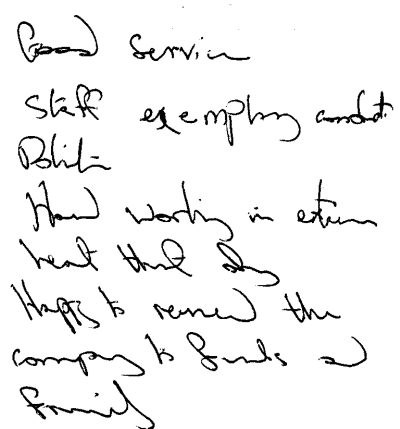 Good Service
Staff exemplary conduct
Polite
Hard working in extreme
heat that day
Happy to
the
company to friends and
family